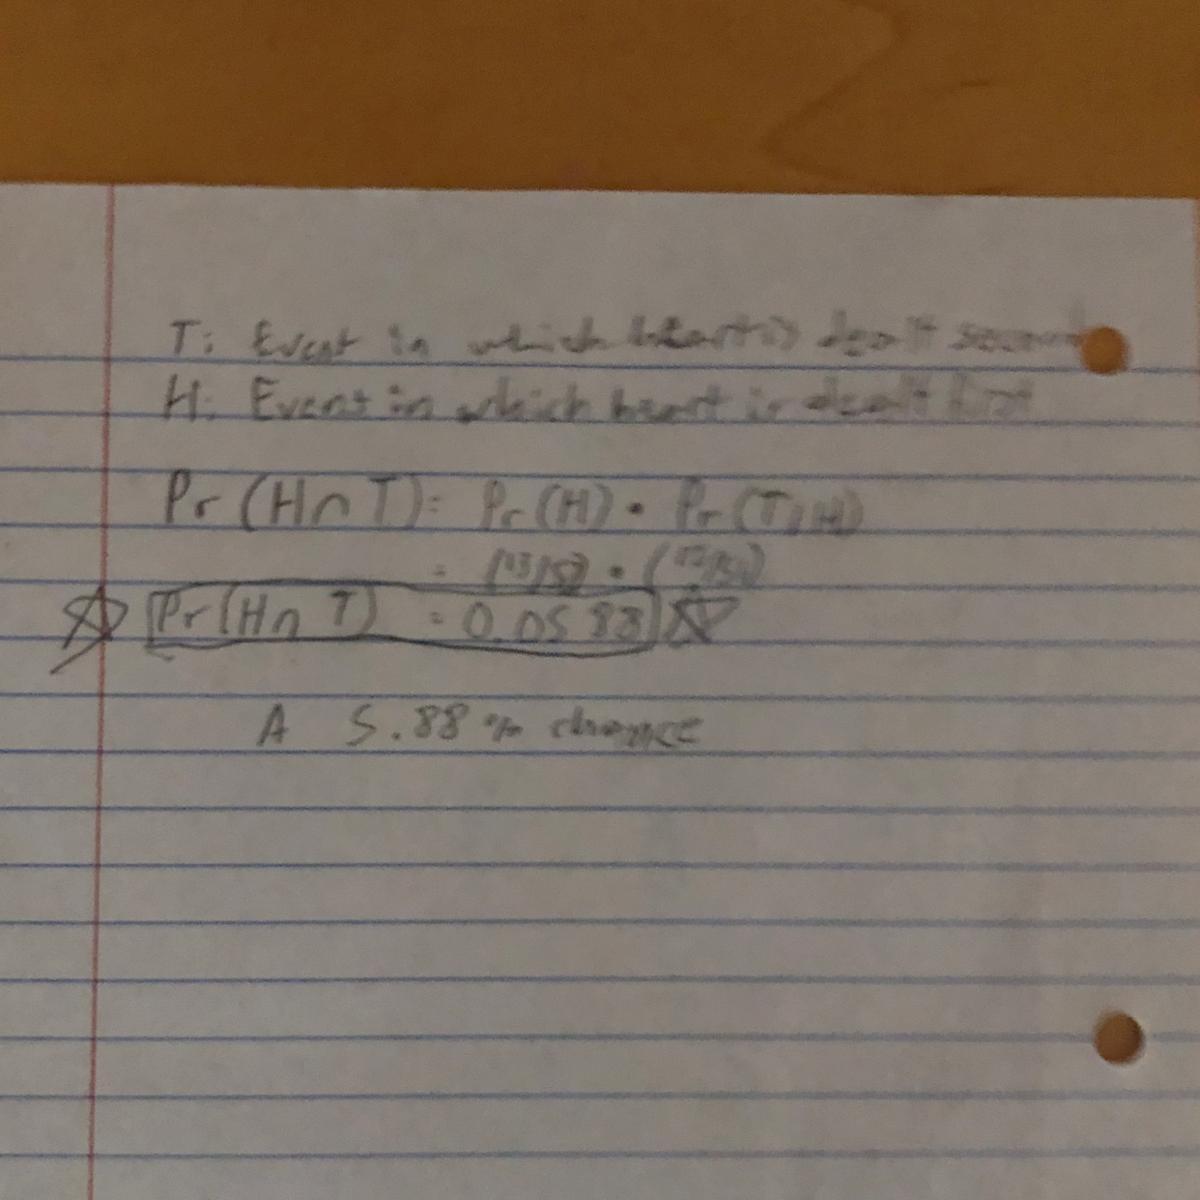 T: Event in which heart is dealt second
H: Event in which heart is dealt first
Pr (H∩T) = Pr(H) • Pr(T|H)
= (13/52) • (12/51)
Pr(H∩T) = 0.0588
A 5.88% chance